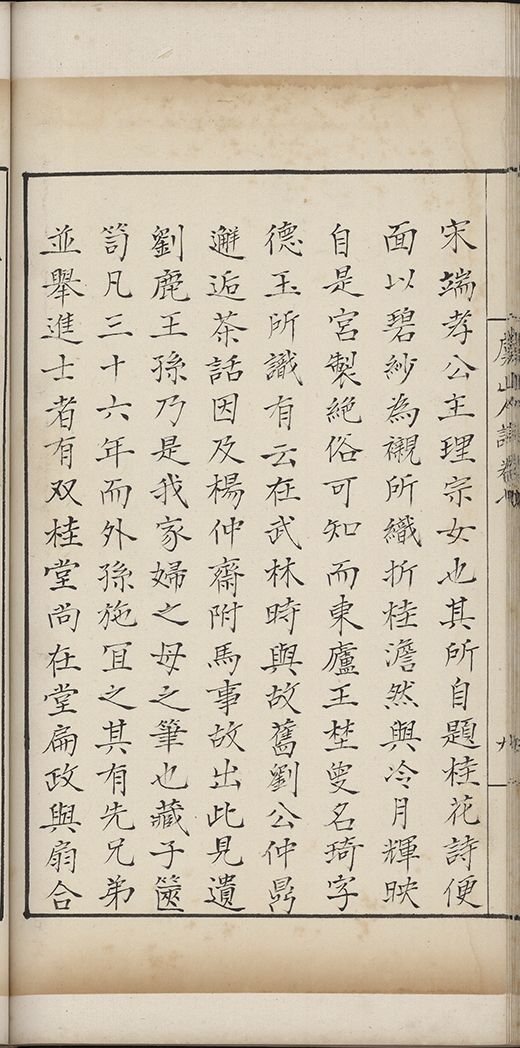 宋端孝公主理宗女也其所自題桂花詩便
面以碧紗為襯所織折桂澹然與冷月輝映
自是宮製絕俗可知而東廬王埜叟名琦字
德玉所識有云在武林時與故舊劉公仲鼎
邂逅茶話因及楊仲齋附馬事故出此見遺
劉鹿王孫乃是我家婦之母之筆也藏子篋
笥凡三十六年而外孫施冝之其有先兄弟
並舉進士者有双桂堂尚在堂扁政與扇合